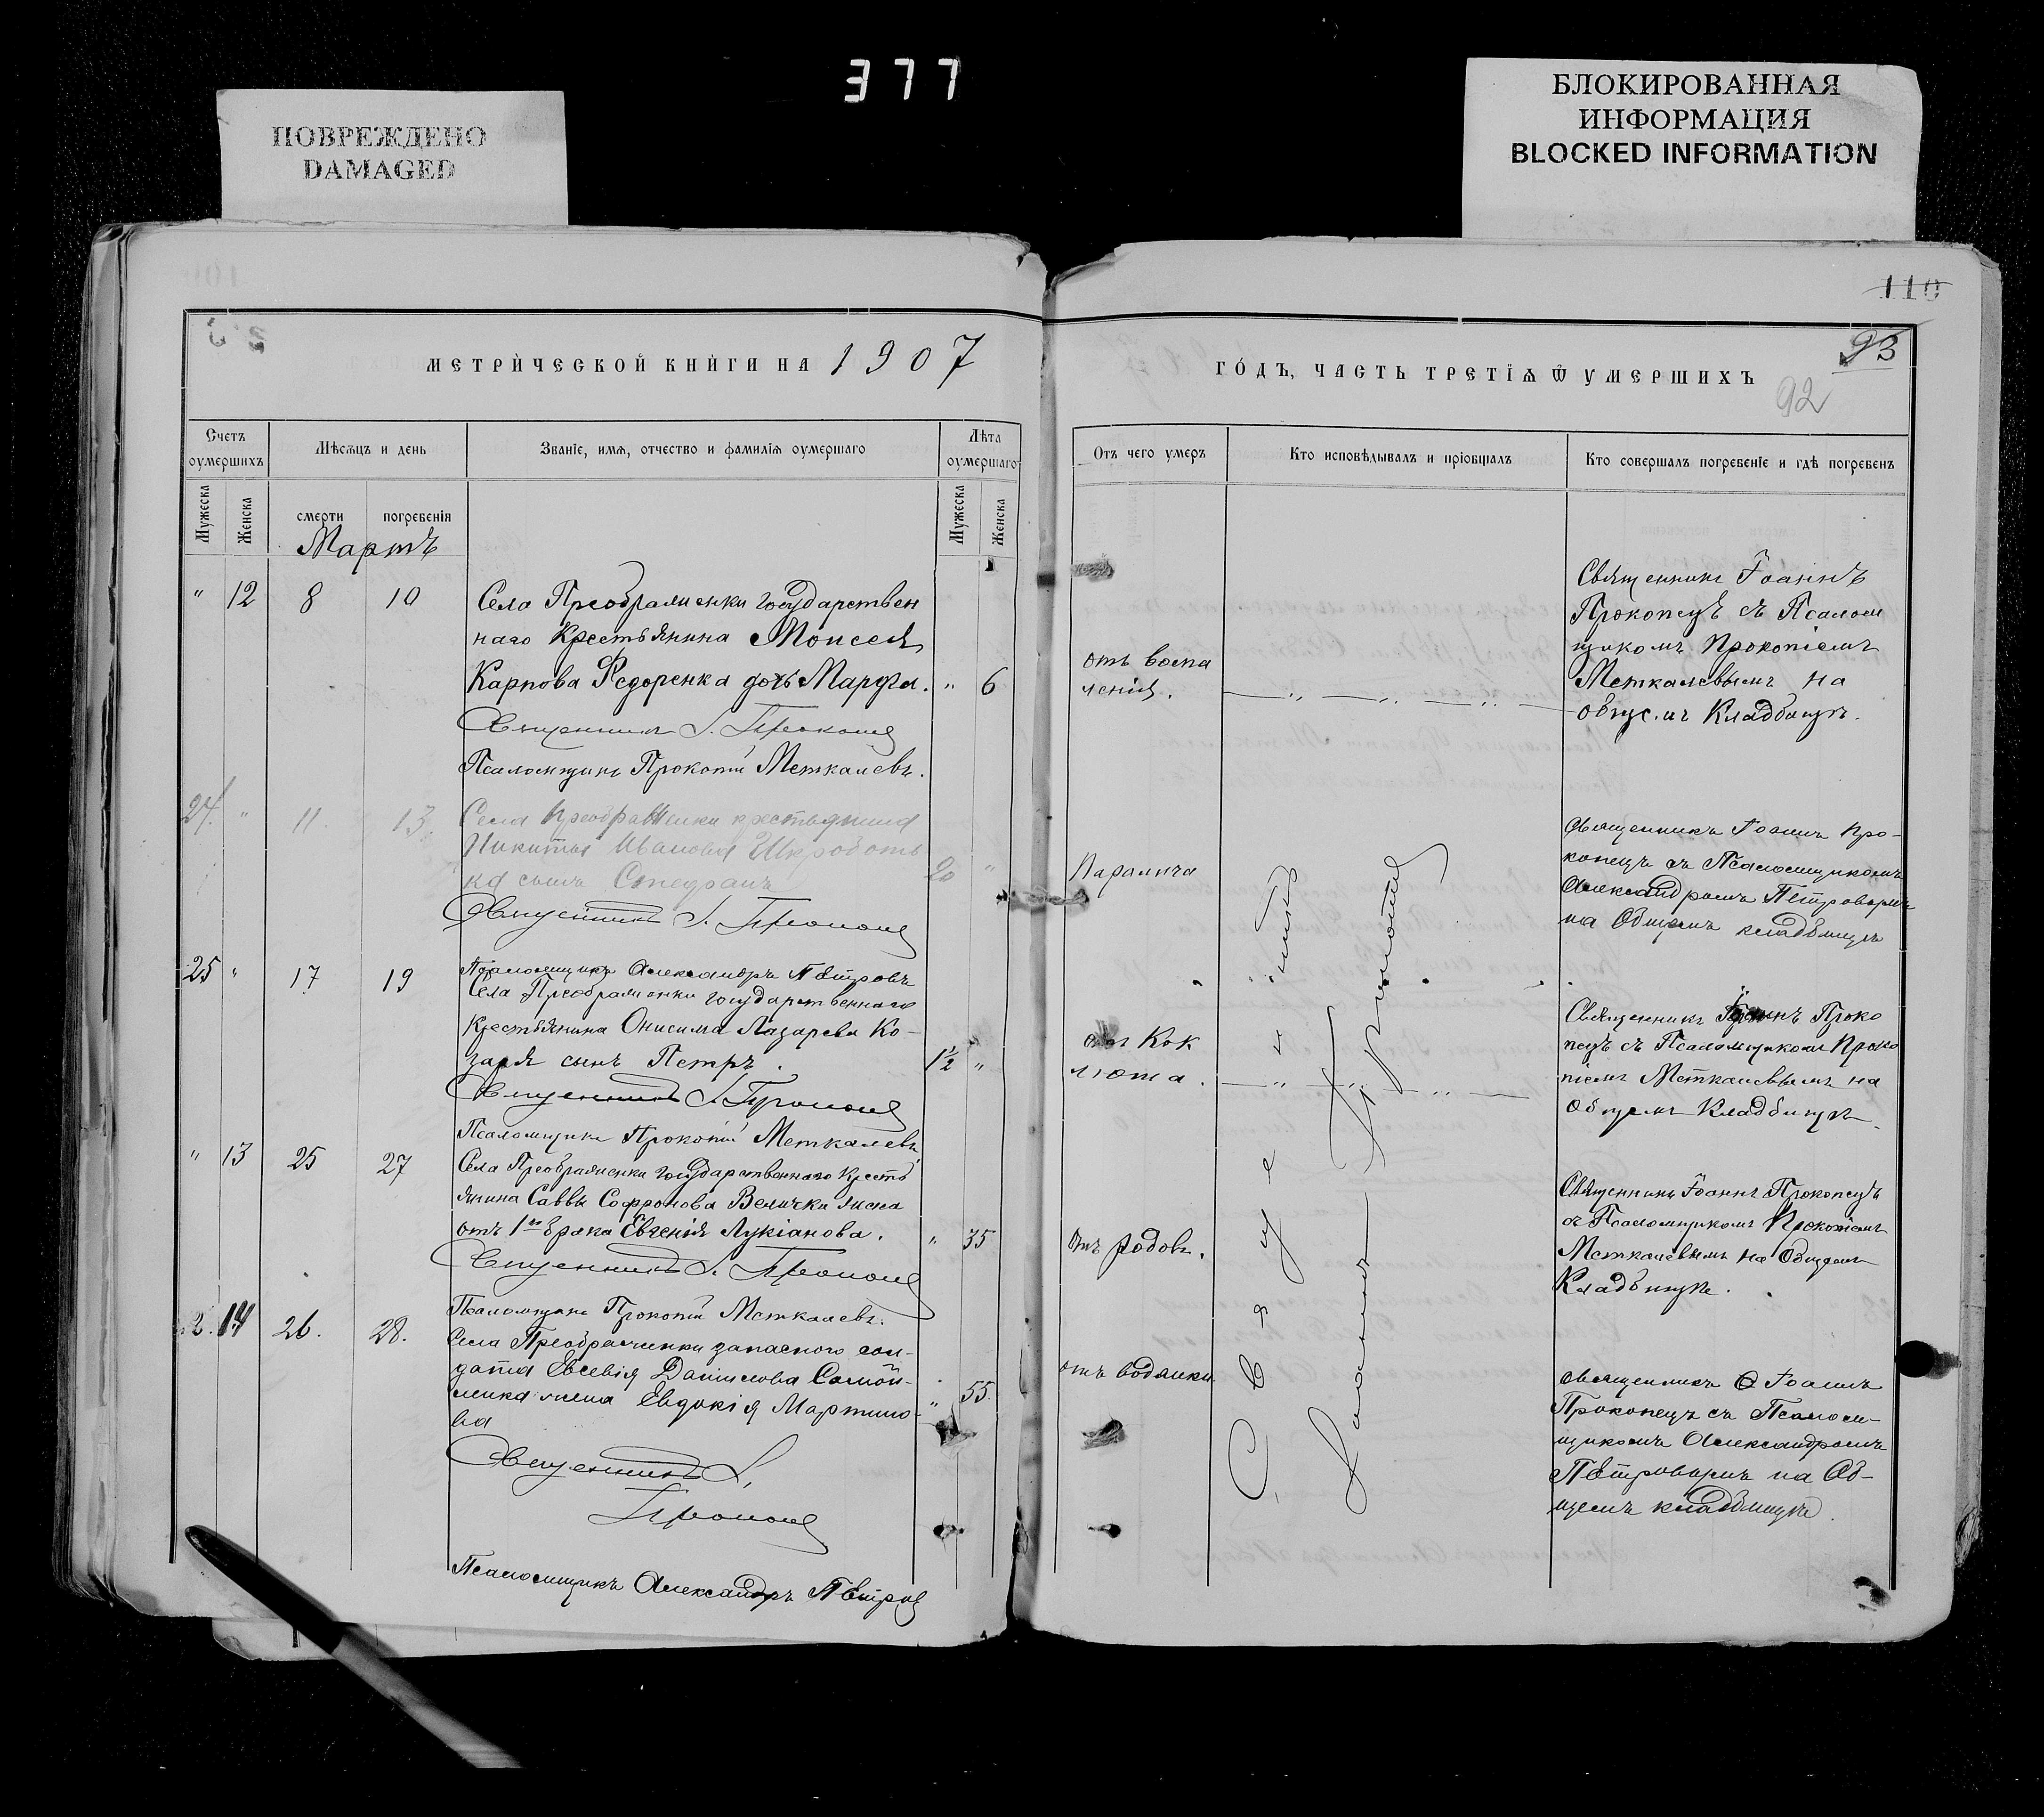 377
ПОВРЕЖДЕНО
DAMAGED
БЛОКИРОВАННАЯ
ИНФОРМАЦИЯ
BLOCKED INFORMATION
110
93
92
МЕТРИЧЕСКОЙ КНИГИ НА 1907
ГОДЪ, ЧАСТЬ ТРЕТІѦ Ѿ УМЕРШИХЪ
Счетъ оумершихъ
Мѣсѧцъ и день
Званіе, имѧ, отчество и фамиліѧ оумершаго
Лѣта оумершаго
Отъ чего умеръ
Кто исповѣдывалъ и пріобщалъ
Кто совершалъ погребеніе и гдѣ погребенъ
Мужеска
Женска
смерти
погребенія
Мужеска
Женска
Мартъ
" 12 8 10
Села Преображенки государствен
наго Крестьянина Моисея
Карпова Федоренка дочь Марфа. " 6
Священникъ І. Прокопецъ
Псаломщикъ Прокопій Меткалевъ.
отъ воспа
ленія.
Священникъ Іоаннъ
Прокопецъ съ Псалом
щикомъ Прокопіемъ
Меткалевымъ на
общемъ Кладбищѣ.
24. " 11. 13.
Села Преображенки крестьянина
Никиты Иванова Шкробот
ка сынъ Стефанъ 20 "
Священникъ І. Прокопецъ
Псаломщикъ Александръ Петровъ
Паралича
Священникъ Іоаннъ Про-
копецъ съ Псаломщикомъ
Александромъ Петровымъ
на Общемъ кладбищѣ
25 " 17 19
Села Преображенки государственнаго
Крестьянина Онисима Лазарева Ко-
заря сынъ Петръ. 1½ "
Священникъ І. Прокопецъ
Псаломщикъ Прокопій Меткалевъ.
отъ Кок
люша.
Священникъ Іоаннъ Проко
пецъ съ Псаломщикомъ Проко
піемъ Меткалевымъ на
Общемъ Кладбищѣ.
" 13 25 27
Села Преображенки государственнаго Кресть
янина Саввы Софронова Величка жена
отъ 1го брака Евгенія Лукіанова. " 35
Священникъ І. Прокопецъ
Псаломщикъ Прокопій Меткалевъ.
Отъ родовъ.
Священникъ Іоаннъ Прокопецъ
съ Псаломщикомъ Прокопіемъ
Меткалевымъ на Общемъ
Кладбищѣ.
14 26. 28.
Села Преображенки запаснаго сол-
дата Евсевія Данилова Самой-
ленка жена Евдокія Мартино- " 55.
ва
Священникъ І.
Прокопецъ
Псаломщикъ Александръ Петровъ
отъ водянки
Священникъ Іоаннъ
Прокопецъ съ Псалом-
щикомъ Александромъ
Петровымъ на Об-
щемъ кладбищѣ.
Священникъ
Іоаннъ Прокопецъ